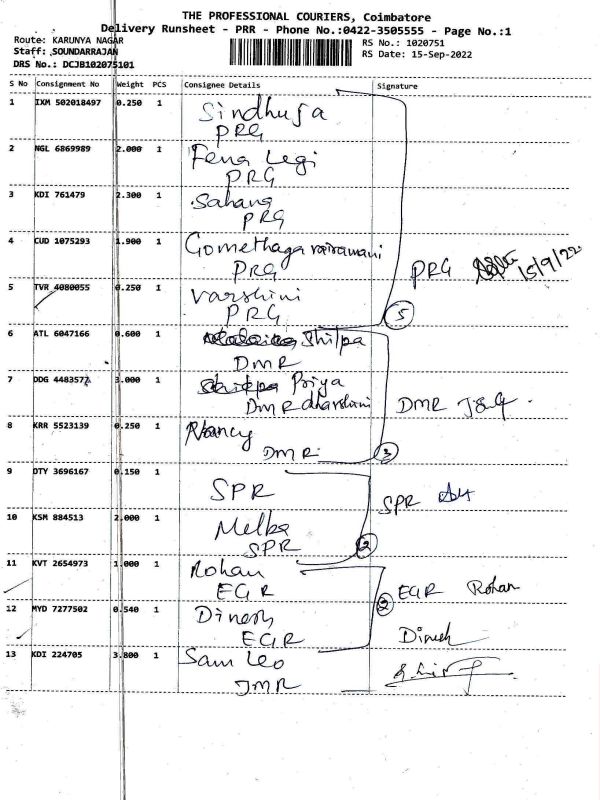 THE PROFESSIONAL COURIERS, Coimbatore
Delivery Runsheet - PRR - Phone No.:0422-3505555 - Page No.:1
Route: KARUNYA NAGAR
Staff: SOUNDARRAJAN
DRS No.: DCJB102075101
RS No.: 1020751
RS Date: 15-Sep-2022
S No Consignment No Weight PCS Consignee Details Signature
1 IXM 502018497 0.250 1 Sindhuja
PRG
2 NGL 6869989 2.000 1 Fena Legi
PRG
3 KDI 761479 2.300 1 Sahana
PRG
4 CUD 1075293 1.900 1
PRG
PRG 15/9/22
5 TVR 4080055 0.250 1 Varshini
PRG
5
6 ATL 6047166 0.600 1 Shilpa
DMR
7 DDG 4483572 3.000 1 Priya
DMR dharshini
DMR
8 KRR 5523139 0.250 1 Nancy
DMR
3
9 DTY 3696167 0.150 1
SPR
SPR
10 KSM 884513 2.000 1 Melba
SPR
2
11 KVT 2654973 1.000 1 Rohan
EGR
EGR Rohan
2
12 MYD 7277502 0.540 1 Dinesh
EGR
Dinesh
13 KDI 224705 3.800 1 Sam Leo
JMR